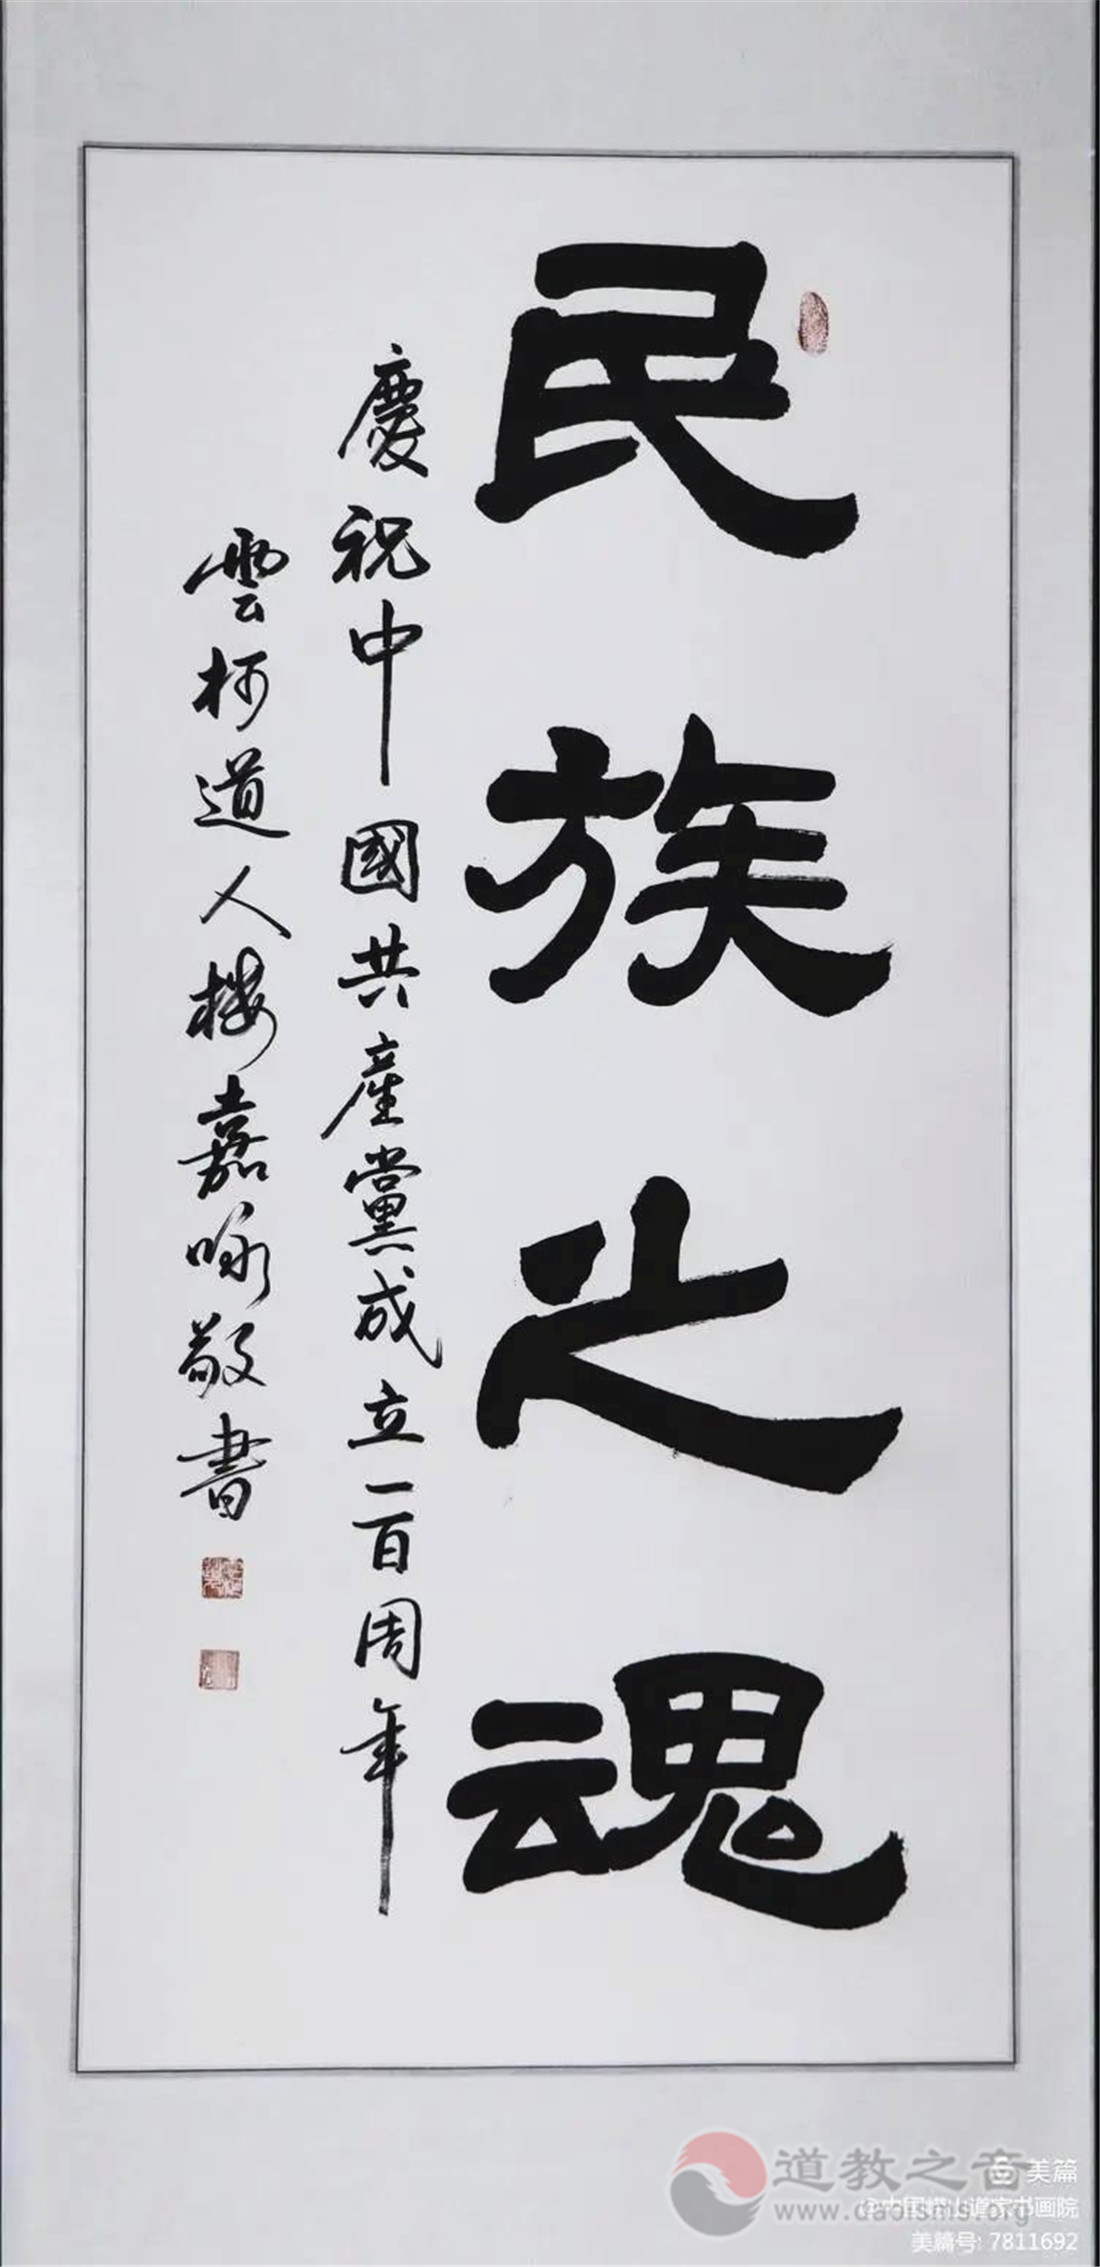 民族之魂
慶祝中國共産黨成立一百周年
雲柯道人樓嘉咏敬書
道教之音
www.daoisms.org
美篇
@中国崂山道家书画院
美篇号: 7811692